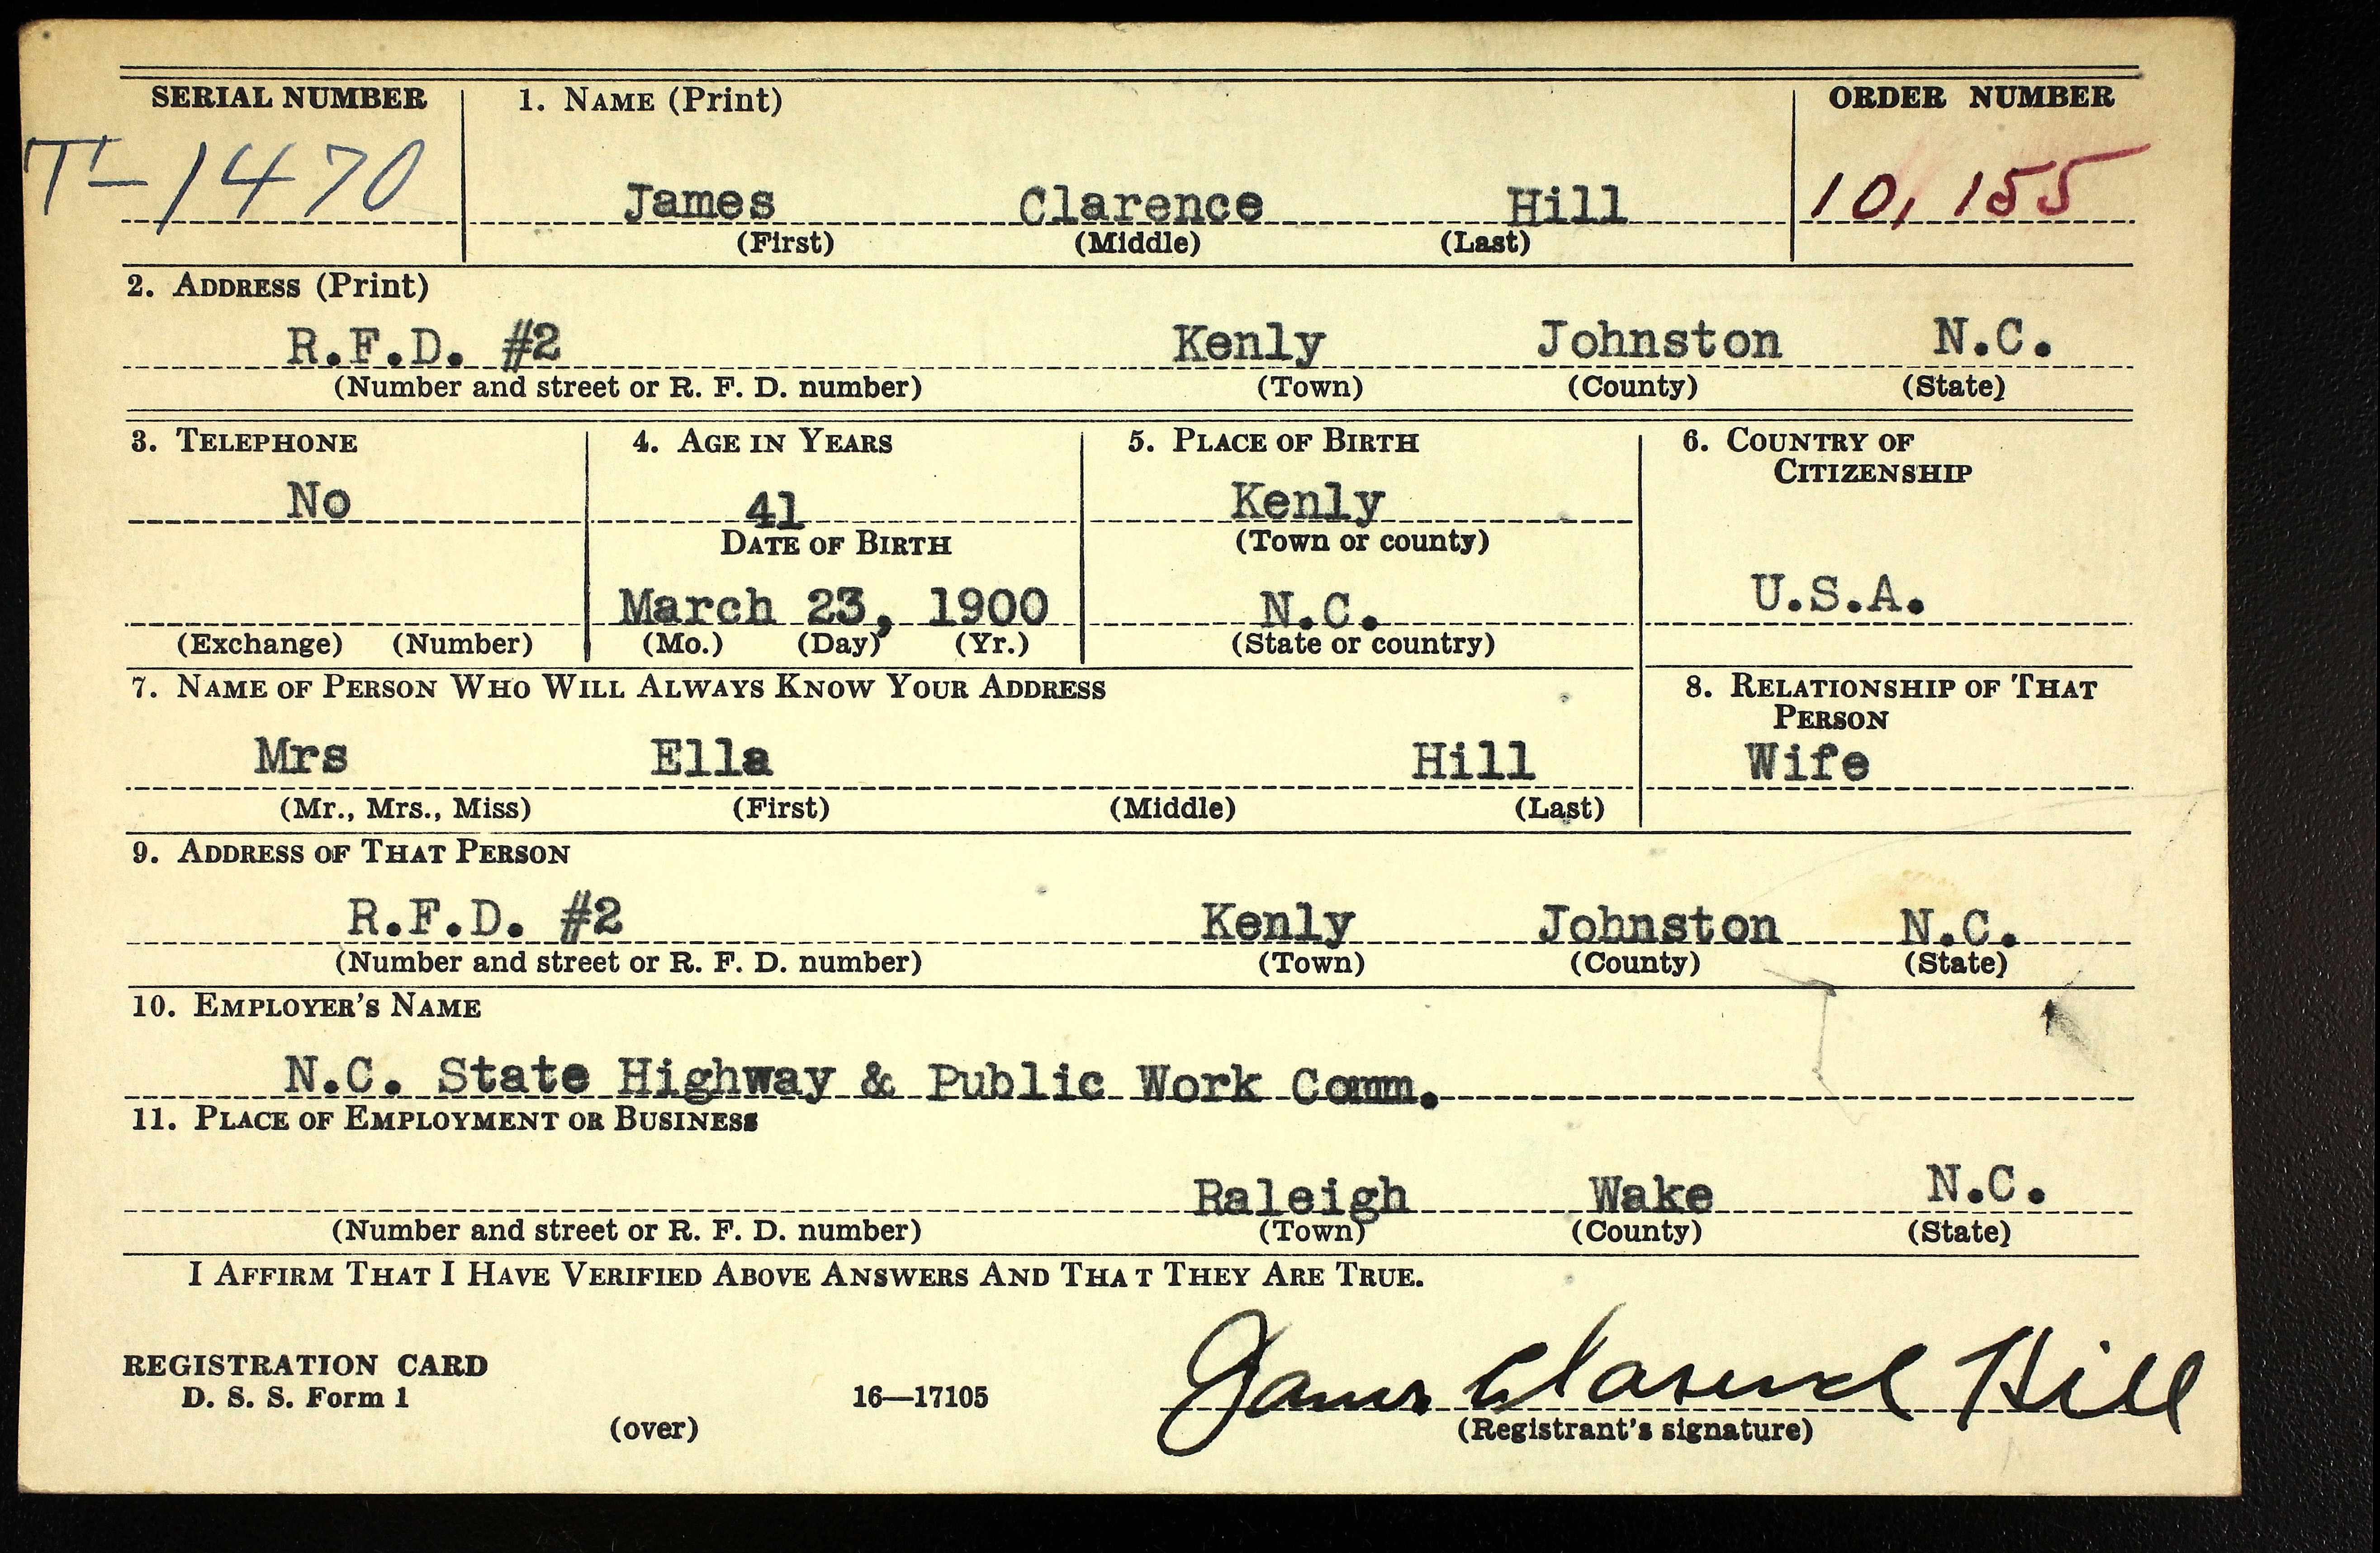 SERIAL NUMBER 1. NAME (Print) ORDER NUMBER
T-1470 James Clarence Hill 10,155
(First) (Middle) (Last)
2. ADDRESS (Print)
R.F.D. #2 Kenly Johnston N.C.
(Number and street or R. F. D. number) (Town) (County) (State)
3. TELEPHONE 4. AGE IN YEARS 5. PLACE OF BIRTH 6. COUNTRY OF
CITIZENSHIP
No 41 Kenly
DATE OF BIRTH (Town or county)
March 23, 1900 N.C. U.S.A.
(Exchange) (Number) (Mo.) (Day) (Yr.) (State or country)
7. NAME OF PERSON WHO WILL ALWAYS KNOW YOUR ADDRESS 8. RELATIONSHIP OF THAT
PERSON
Mrs Ella Hill Wife
(Mr., Mrs., Miss) (First) (Middle) (Last)
9. ADDRESS OF THAT PERSON
R.F.D. #2 Kenly Johnston N.C.
(Number and street or R. F. D. number) (Town) (County) (State)
10. EMPLOYER'S NAME
N.C. State Highway & Public Work Comm.
11. PLACE OF EMPLOYMENT OR BUSINESS
Raleigh Wake N.C.
(Number and street or R. F. D. number) (Town) (County) (State)
I AFFIRM THAT I HAVE VERIFIED ABOVE ANSWERS AND THAT THEY ARE TRUE.
James Clarence Hill
REGISTRATION CARD
D. S. S. Form 1 16—17105
(over) (Registrant's signature)